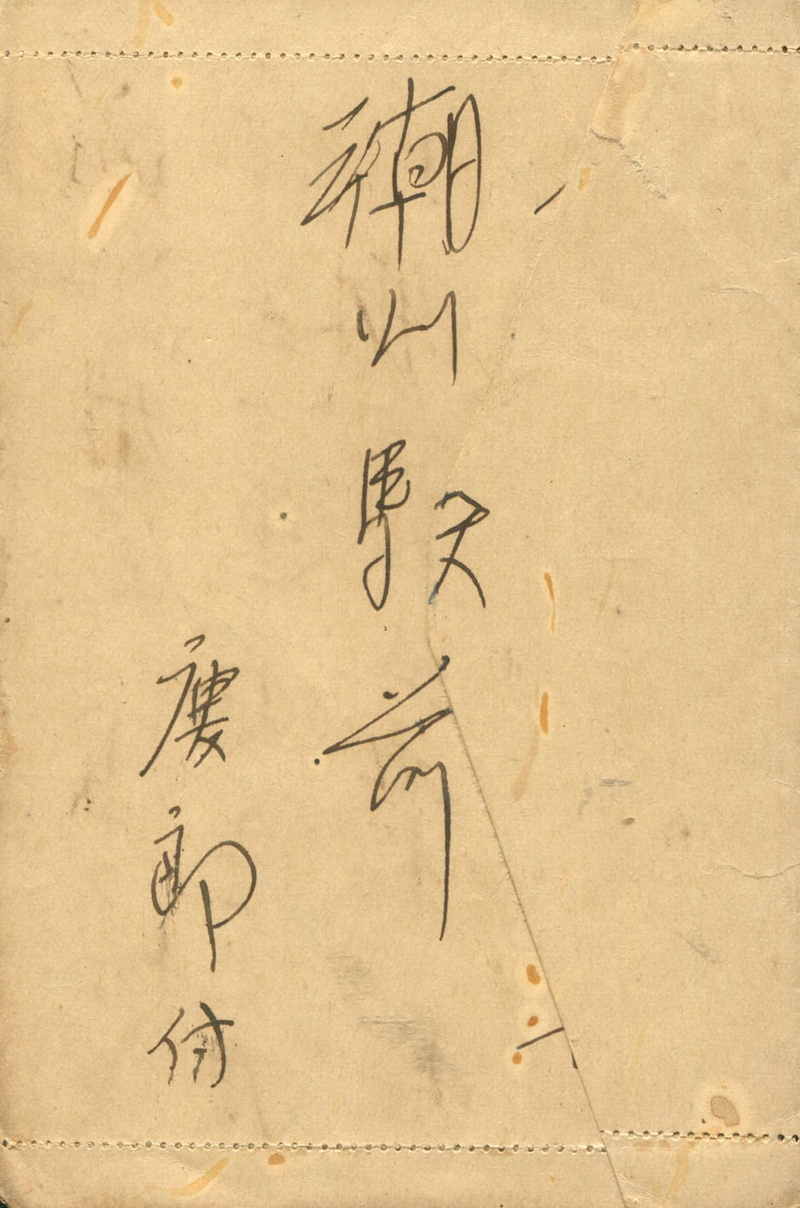 潮州駅前
慶郎付